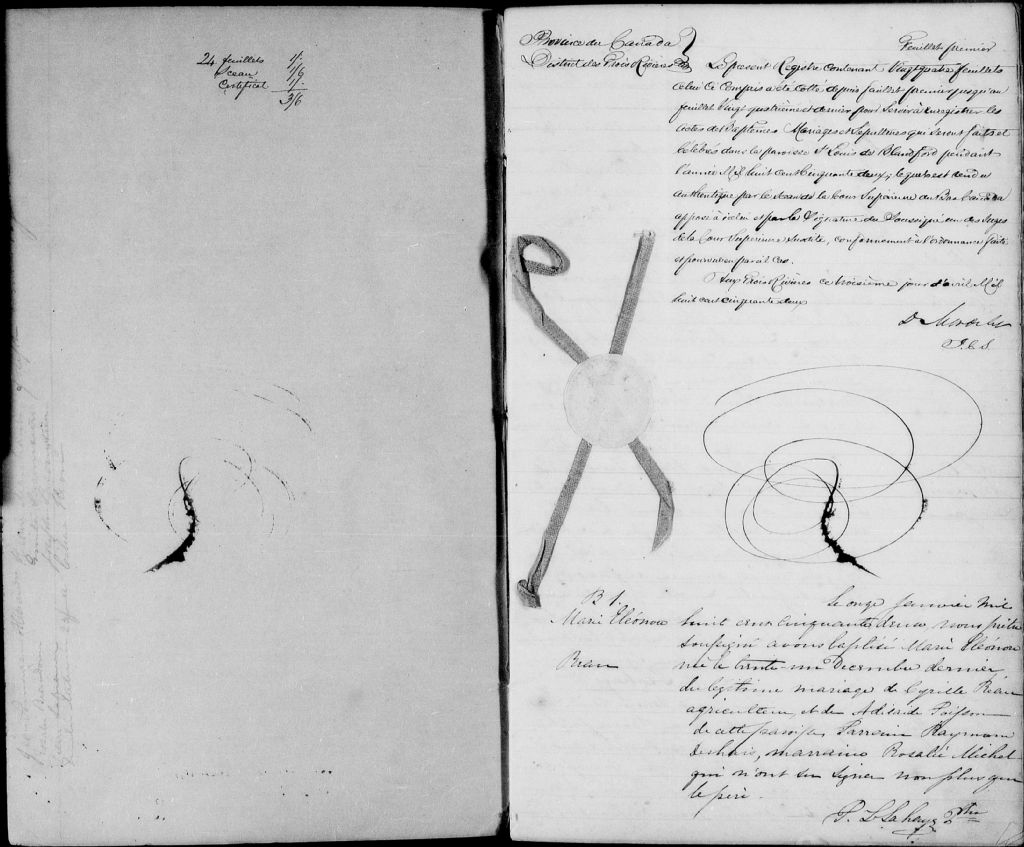 24 feuillets 1/.
Sceau 1/6
Certificat 1/.
3/6
Province du Canada
District des Trois Rivières
Feuillet premier
Le présent Registre contenant vingt quatre feuillets
celui ci compris a été cotté depuis feuillet premier jusqu'au
feuillet vingt quatrième et dernier pour servir à enregistrer les
actes de Baptêmes Mariages et Sépultures qui seront faits et
célébrés dans la paroisse St Louis de Blandford pendant
l'année Mil huit cent cinquante deux; lequel est rendu
authentique par le sceau de la Cour Supérieure du Bas Canada
apposé à icelui et par la Signature du Soussigné un des Juges
de la Cour Supérieure susdite, conformément à l'ordonnance faite
et pourvue en pareil cas.
Aux Trois Rivières ce troisième jour d'avril Mil
huit cent cinquante deux
J.C.S.
B 1.
Marie Eléonore
Reau
Le onze janvier mil
huit cent cinquante deux nous prêtre
soussigné avons baptisé Marie Eléonore
née le trente-un Decembre dernier
du légitime mariage de Cyrille Reau
agriculteur, et de Adélaide Poisson
de cette paroisse, Parrain Raymond
Deshais, marraine Rosalie Michel
qui n'ont su signer non plus que
le père.
P. L. Lahaye Ptre